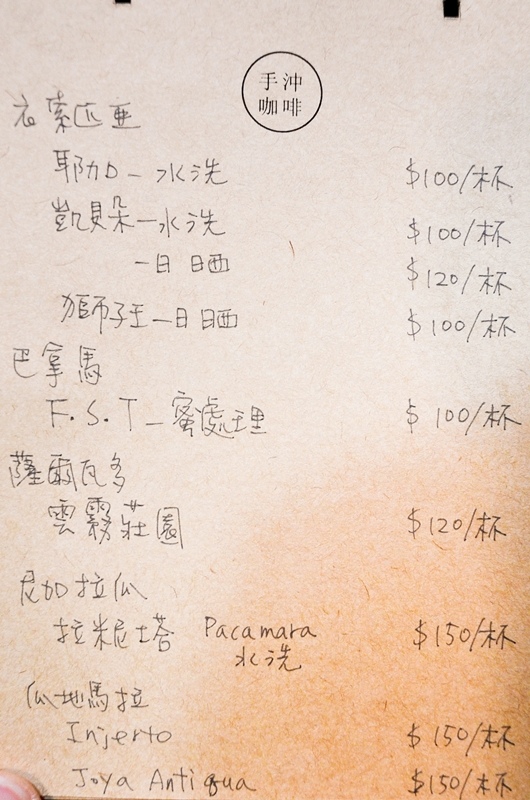 手沖
咖啡
衣索匹亞
耶加-水洗 $100/杯
凱貝朵-水洗 $100/杯
-日晒 $120/杯
獅子王-日晒 $100/杯
巴拿馬
F.S.T-蜜處理 $100/杯
薩爾瓦多
雲霧莊園 $120/杯
尼加拉瓜
拉米尼塔 Pacamara $150/杯
水洗
瓜地馬拉
Injerto $150/杯
Joya Antigua $150/杯